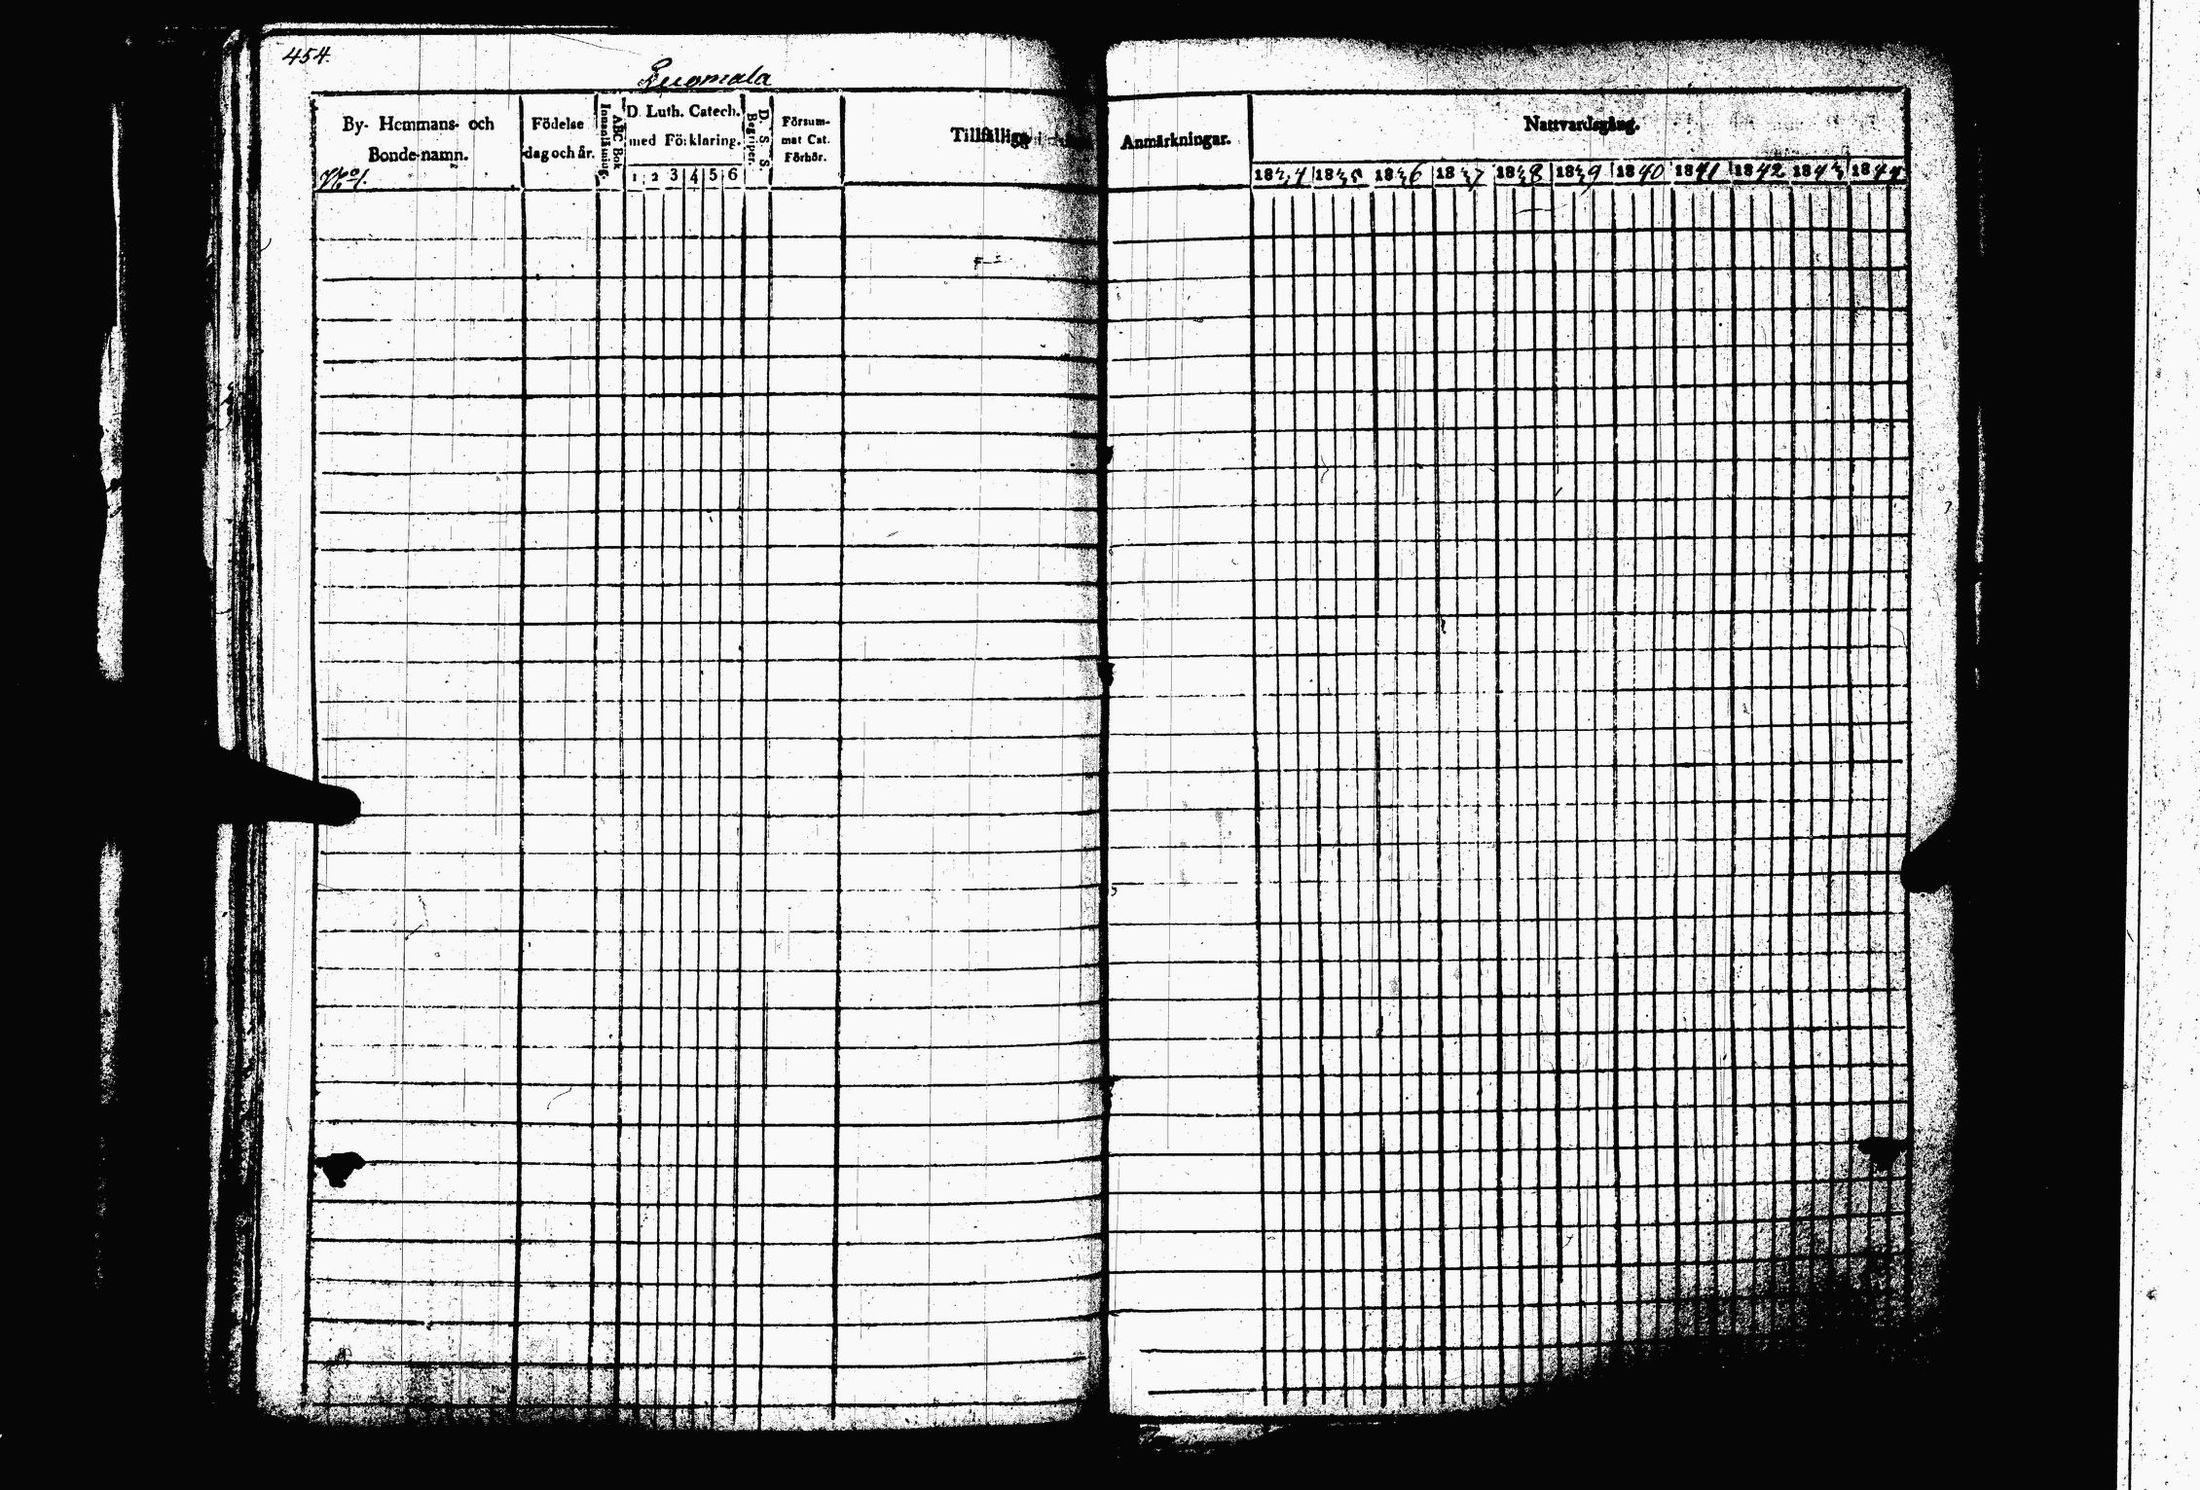 454.
Luomala
By- Hemmans- och
Bonde-namn.
No 1.
Födelse
dag och år.
ABC Bok
Innanläsning.
D. Luth. Catech.
med Förklaring.
1 2 3 4 5 6
D. S. S.
Begriper.
Försum-
mat Cat.
Förhör.
Tillfällige
Anmärkningar.
Nattvardsgång.
1834 1835 1836 1837 1838 1839 1840 1841 1842 1843 1844